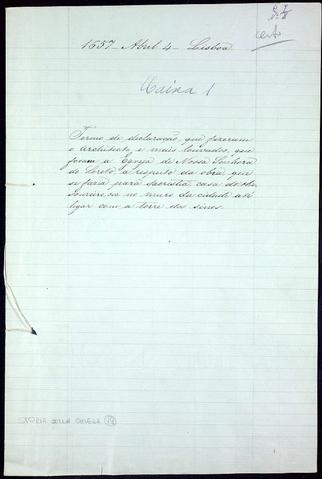 certo
1657 - Abril 4 - Lisboa
Caixa 1
Termo de declaração que fizeram
o architheto e mais louvados, que
foram a Egreja de Nossa Senhora
do Loreto a respeito da obra que
se faria para sacristia, casa do the
soureiro, no muro da cidade a
ligar com a torre dos sinos.
STORIA DELLA CHIESA